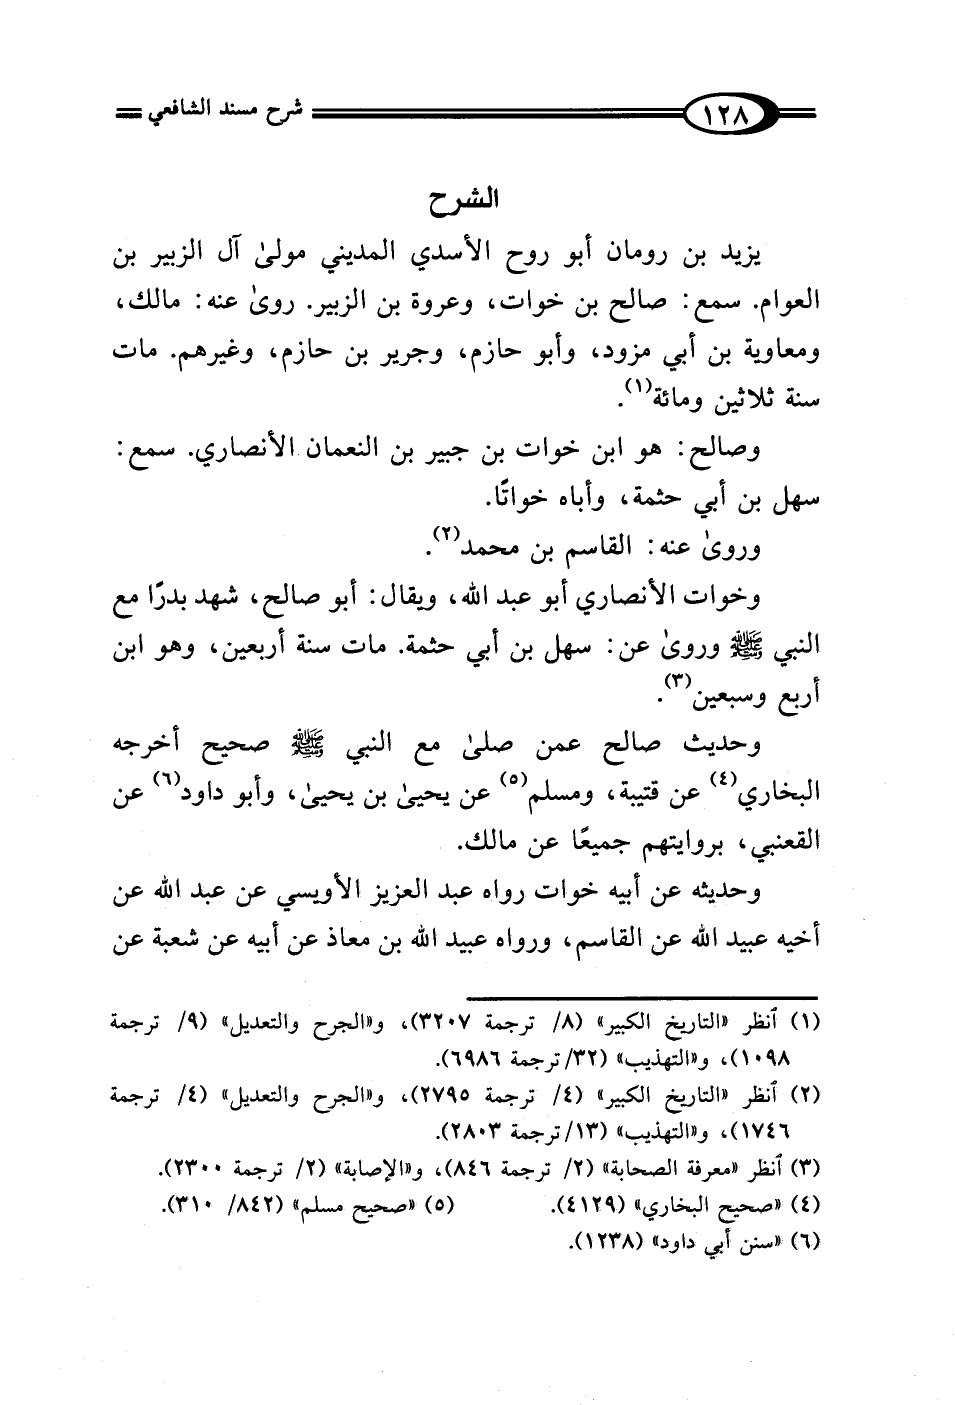 ١٢٨ شرح مسند الشافعي
الشرح
يزيد بن رومان أبو روح الأسدي المديني مولىٰ آل الزبير بن
العوام. سمع: صالح بن خوات، وعروة بن الزبير. روىٰ عنه: مالك،
ومعاوية بن أبي مزود، وأبو حازم، وجرير بن حازم، وغيرهم. مات
سنة ثلاثين ومائة(١).
وصالح: هو ابن خوات بن جبير بن النعمان الأنصاري. سمع:
سهل بن أبي حثمة، وأباه خواتًا.
وروىٰ عنه: القاسم بن محمد(٢).
وخوات الأنصاري أبو عبد الله، ويقال: أبو صالح، شهد بدرًا مع
النبي ﷺ وروىٰ عن: سهل بن أبي حثمة. مات سنة أربعين، وهو ابن
أربع وسبعين(٣).
وحديث صالح عمن صلىٰ مع النبي ﷺ صحيح أخرجه
البخاري(٤) عن قتيبة، ومسلم(٥) عن يحيىٰ بن يحيىٰ، وأبو داود(٦) عن
القعنبي، بروايتهم جميعًا عن مالك.
وحديثه عن أبيه خوات رواه عبد العزيز الأويسي عن عبد الله عن
أخيه عبيد الله عن القاسم، ورواه عبيد الله بن معاذ عن أبيه عن شعبة عن
(١) ٱنظر «التاريخ الكبير» (٨/ ترجمة ٣٢٠٧)، و«الجرح والتعديل» (٩/ ترجمة
١٠٩٨)، و«التهذيب» (٣٢/ ترجمة ٦٩٨٦).
(٢) ٱنظر «التاريخ الكبير» (٤/ ترجمة ٢٧٩٥)، و«الجرح والتعديل» (٤/ ترجمة
١٧٤٦)، و«التهذيب» (١٣/ ترجمة ٢٨٠٣).
(٣) ٱنظر «معرفة الصحابة» (٢/ ترجمة ٨٤٦)، و«الإصابة» (٢/ ترجمة ٢٣٠٠).
(٤) «صحيح البخاري» (٤١٢٩). (٥) «صحيح مسلم» (٨٤٢/ ٣١٠).
(٦) «سنن أبي داود» (١٢٣٨).